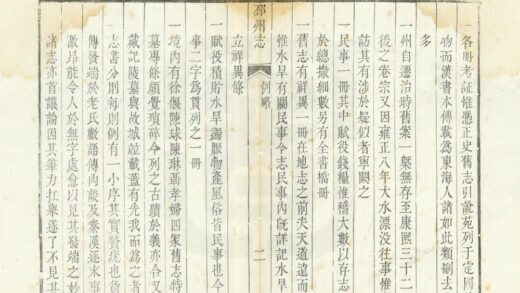 一各冊考証惟憑正史舊志引說苑列于定國
吻而漢書本傳載為東海人諸如此類刪去
多
一州自遷治時舊案一槩無存至康熙三十二
後之卷宗又因雍正八年大水漂没往事惟
訪其有涉於疑似者寧闕之
一民事一冊其中賦役錢糧惟稽大數以存志
於總撒細數另有全書檔冊
一舊志有祥異一冊在地志之前夫天道遠而
惟水旱有關民事今志民事內既詳記水旱
立祥異條
邳州志
例畧
二
一賦役積貯水旱蠲賑物產風俗皆民事也今
事二字為貫列之一冊
一境內有徐偃陳球陳琳聶孝婦四冢舊志特
墓專條頗覺瑣碎今列之古蹟於義亦合又
戴記陵墓與故城竝載蓋有先我而為之者
志書分則每則例有一小序其實贅疣也昔
傳發端於老氏數語傳內談及秦漢迹末事
激昂能令人於無字處愈以見其發端之妙
諸志亦首議論因其筆力扛舉遂了不見其